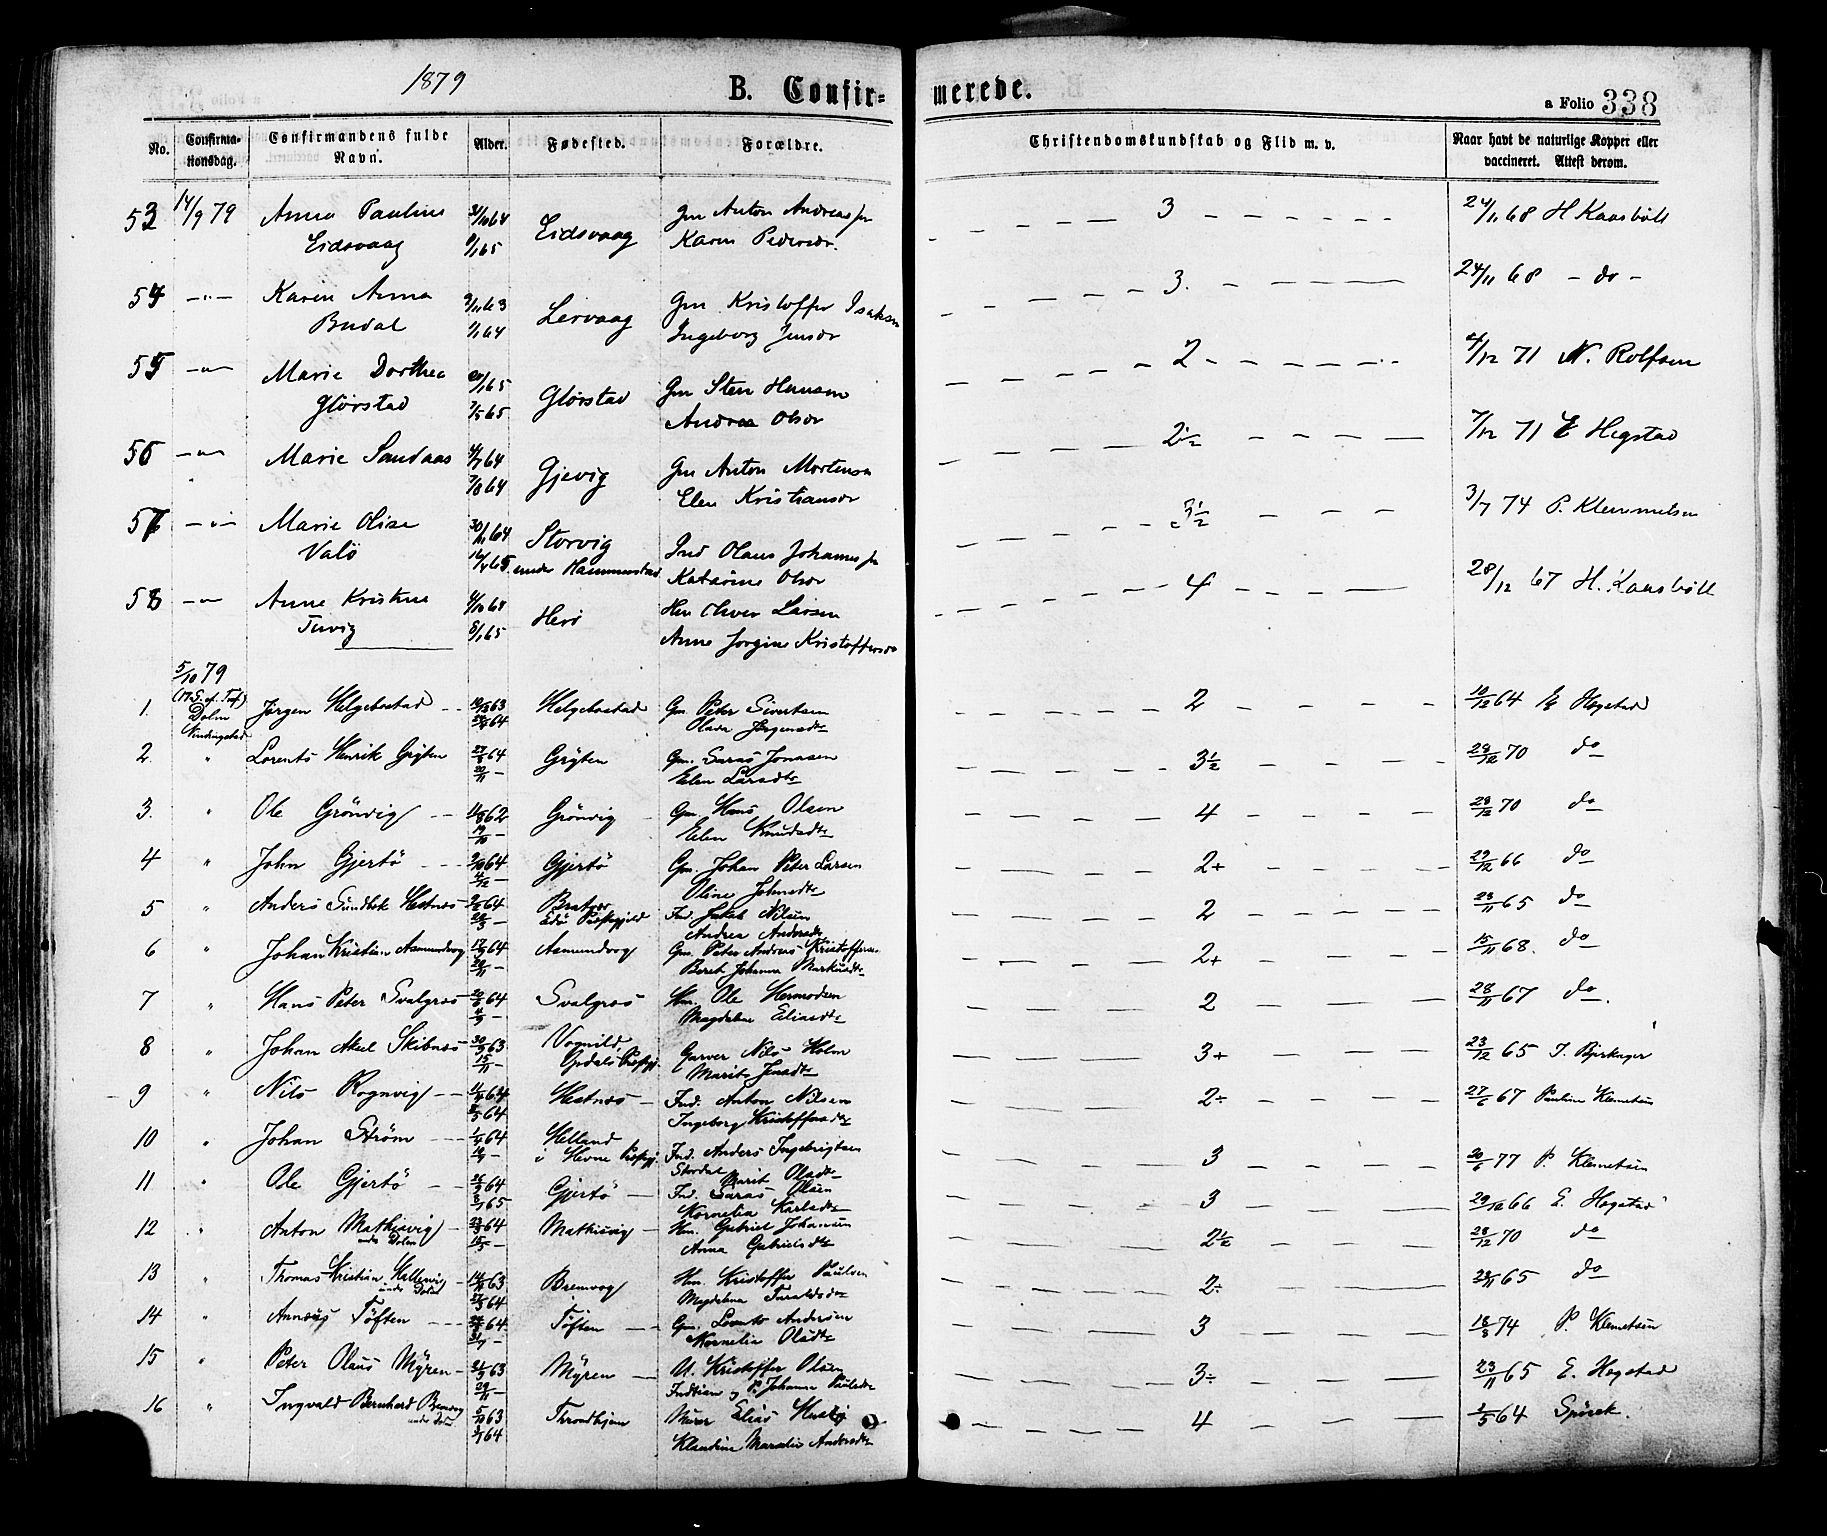 1879
B. Confir=
merede.
a Folio 338
No.
Confirma-
tionsdag.
Confirmandens fulde
Navn.
Alder.
Fødested.
Forældre.
Christendomskundskab og Flid m. v.
Naar havt de naturlige Kopper eller
vaccineret. Attest derom.
53 14/9 79 Anna Pauline Eidsvaag 9/1 65 Eidsvaag Gm Anton Andreas
Karen Pedersdr. 3 24/11 68 H Kaasbøll
54 Karen Anna Budal 1/1 64 Lervaag Gm Kristoffer Isaksen
Ingeborg Jensdr 3. 24/11 68 - do -
55 Marie Dorthea Glørstad 20/1 65 7/5 65 Glørstad Gm Sten Hansen
Andrea Olsdr 2 4/12 71 N. Rolfsen
56 Marie Sandaas 4/7 64 7/8 64 Gjevig Gm Anton Mortensen
Elen Kristiansdr 2½ 7/12 71 E Hegstad
57 Marie Olise Valø 30/11 64 16/4 65 Storvig
under Hammerstad Ind Olaus Johannes
Katarine Olsdr 3½ 3/7 74 P. Klemmetsen
58 Anne Kristine 4/10 64 8/1 65 Herø Hm Oliver Larsen
Anne Jorgine Kristoffersdr 4 28/12 67 H. Kaasbøll
5/10 79
Dolm
1. Jørgen Helgebostad Helgebostad Gm. Peter Sivertsen
Olava Jørgensdtr 2 10/12 64 E Hegstad
2. " Lorents Henrik Grÿten 20/11 - Grÿten Gm. Jonasen
Elen Larsdtr 3½ 28/12 70 do
3. " Ole Grönvig 62 19/10 - Grönvig Gm. Hans Olsen
Elen Knudsdtr 4 28/12 70 do
4 " John Gjertö 9/10 64 4/12 - Gjertö Gm. Johan Peter Larsen
Oline Johnsdtr 2+ 29/12 66 do
5 " Anders Sundbek Hestnæs 64 28/3 - Bratvær
Edö Præstgjeld Ind. Jakob Nilsen
Andrea Andersdtr 2 23/11 65 do
6 " Johan Kristian Aamundvog 64 20/11 - Aamundvog Gm. Peter Andreas Kristoffersen
Berit Johanna Markusdtr 2+ 15/11 68. do
7 " Hans Peter Svalgræs 20/6 64 4/9 - Svalgræs Hm. Ole Hermodsen
Magdalena Eliasdtr 2 28/11 67 do.
8 " Johan Aksel Skibnæs 30/9 63 15/11 - Vognild,
Opdals Præstgj. Garver Nils Holm
Marit Jensdtr 3+ 23/12 65 J. Bjerkager
9 " Nils Rognvig 64 Hestnæs Ind. Anton Nilsen
Ingeborg Kristoffersdtr 2÷ 27/6 67 Pauline Klemetsen
10 " Johan Ström 64 Helland
i Hevne Præstgj. Ind. Anders Ingebrigtsen
Stordal Marit Olsdtr 3 20/6 77 P. Klemetsen
11 " Ole Gjertö 64 65 Gjertö Ind. Olsen
Kornelia Karlsdtr 3 29/12 66 E. Hegstad
12 " Anton Mathisvig
under Dolm 64 Mathisvig Hm. Gabriel Johansen
Anna Gabrielsdtr 2½ 28/12 70 do
13 " Thomas Kristian
under Dolm 63 64 Bremvog Hm. Kristoffer Paulsen
Magdalena 2÷ 65 do
14 " Annæus Töften 64. Töften Gm. Lorents Andersen
Kornelia Olsdtr 3 18/8 74 P. Klemetsen
15 " Peter Olaus Mÿren 63 29/11 - Mÿren U. Kristoffer Olsen
og P. Johanna Paulsdtr 3÷ 23/11 65 E. Hegstad
16 " Ingvald Bernhard Bremvog
under Dolm 63 64 Throndhjem Murer Elias
Klaudine Andersdtr 4 1/5 64